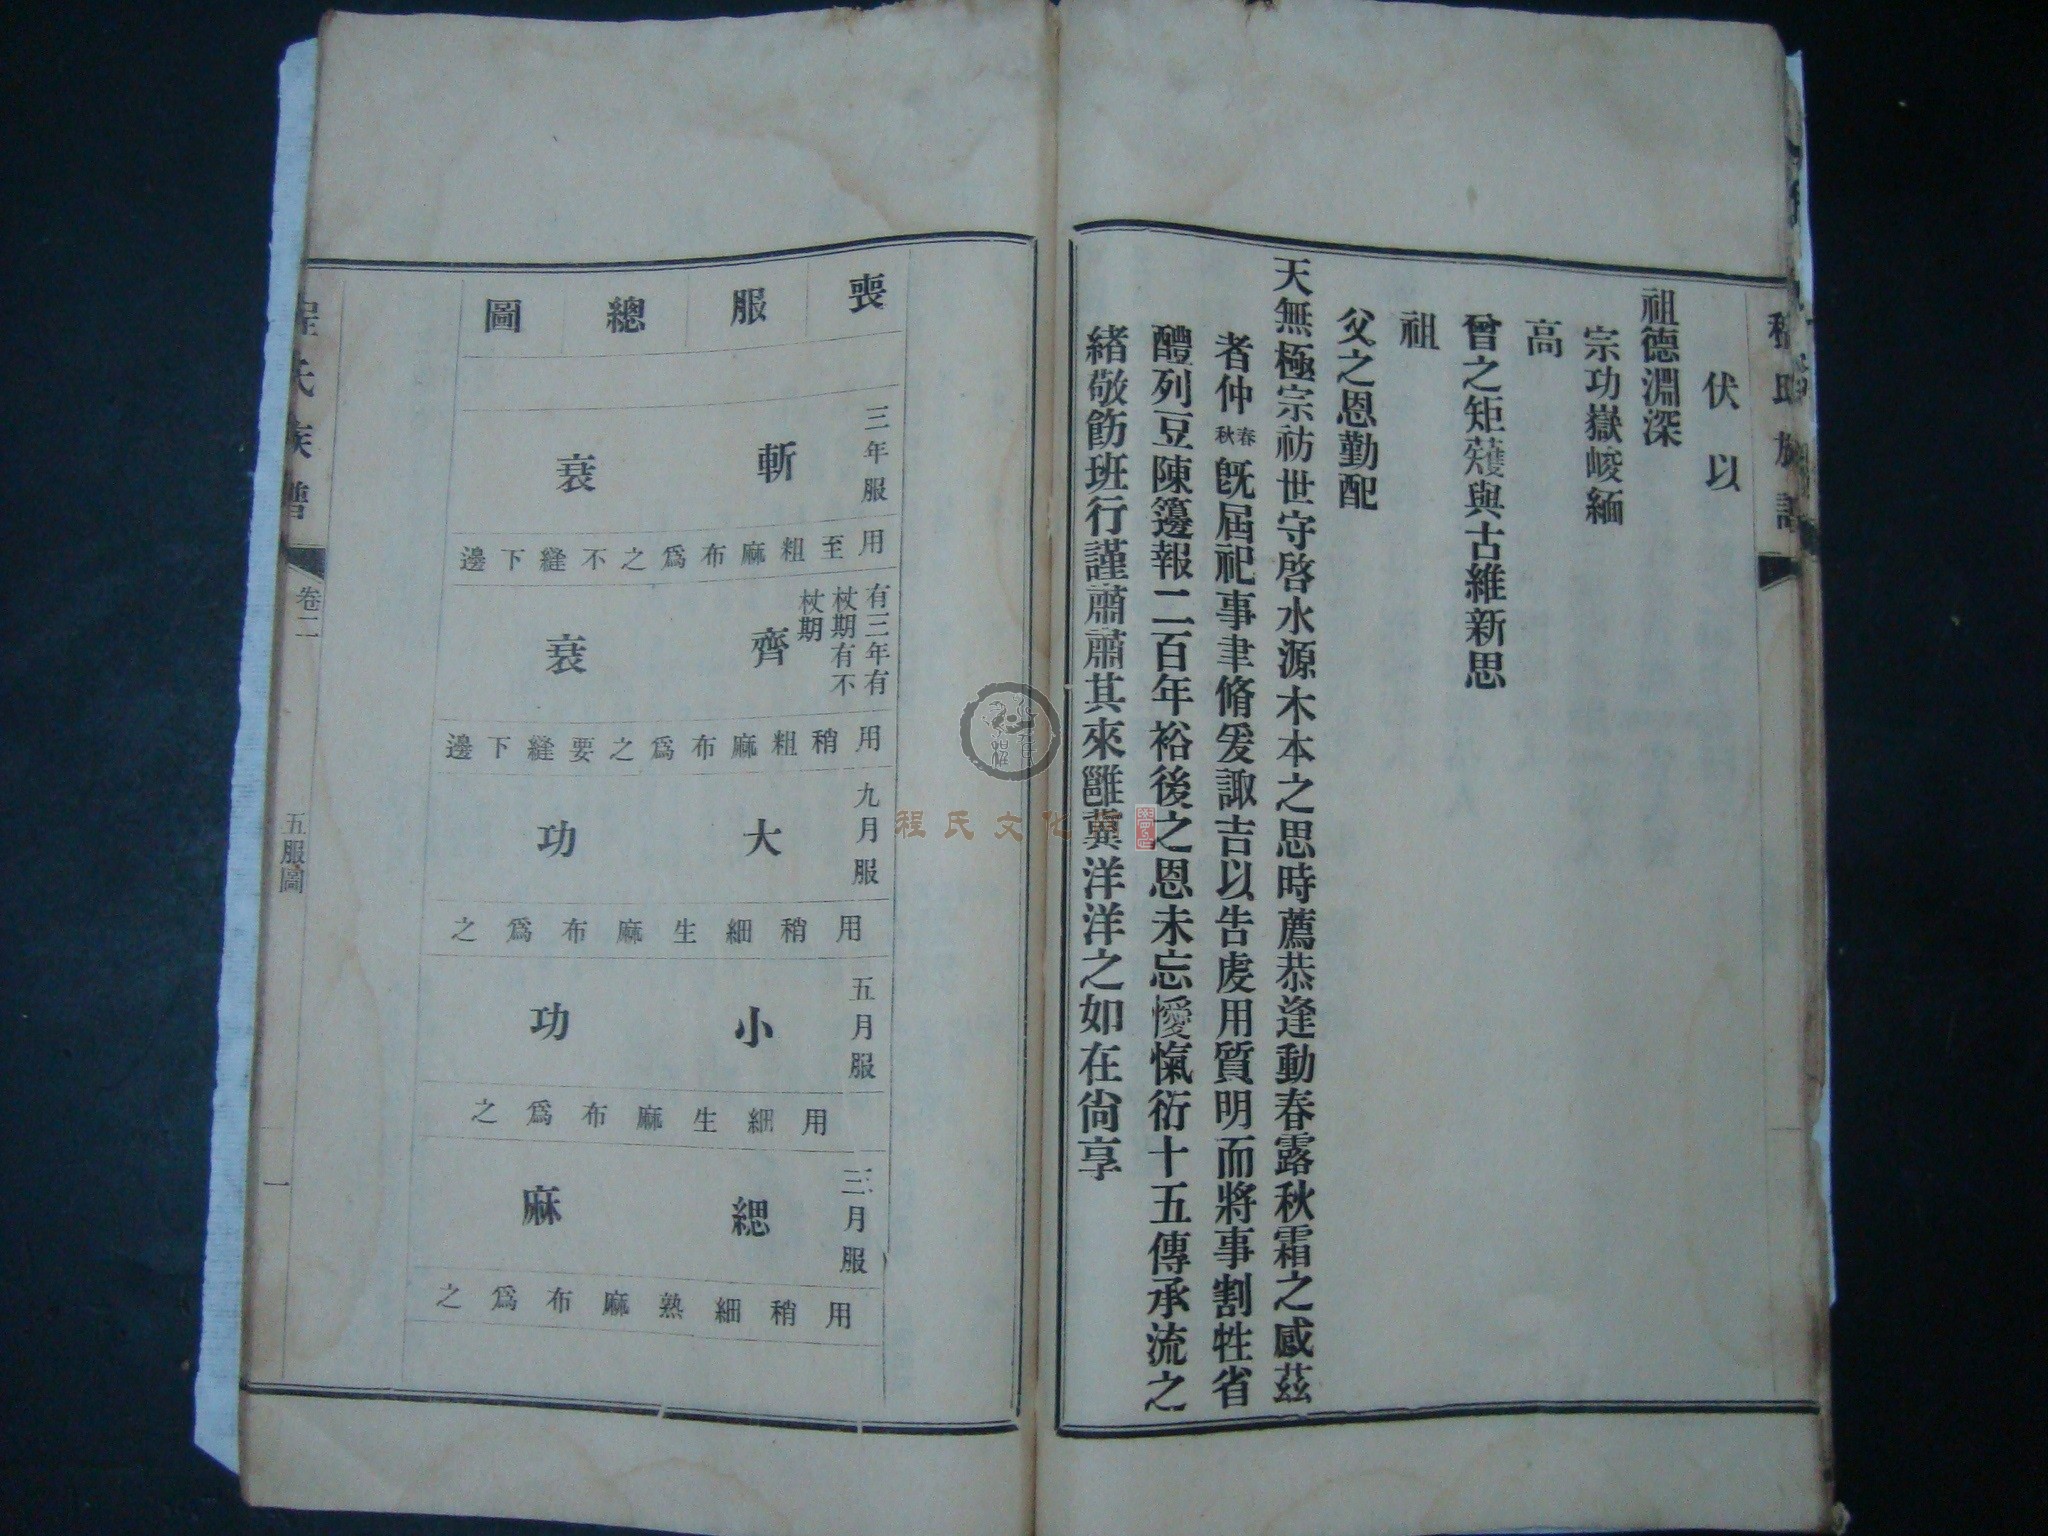 程氏族譜
伏以
祖德淵深
宗功嶽峻緬
高
曾之矩矱與古維新思
祖
父之恩勤配
天無極宗祊世守啓水源木本之思時薦恭逢動春露秋霜之感茲
者仲春秋旣屆祀事聿脩爰諏吉以告虔用質明而將事割牲省
醴列豆陳籩報二百年裕後之恩未忘懓愾衍十五傳承流之
緒敬飭班行謹肅肅其來雝冀洋洋之如在尙享
喪服總圖
三年服
斬衰
用至粗麻布爲之不縫下邊
有三年有
杖期有不
杖期
齊衰
用稍粗麻布爲之要縫下邊
九月服
大功
用稍細生麻布爲之
五月服
小功
用細生麻布爲之
三月服
緦麻
用稍細熟麻布爲之
程氏族譜
卷二
五服圖
一
程氏文化